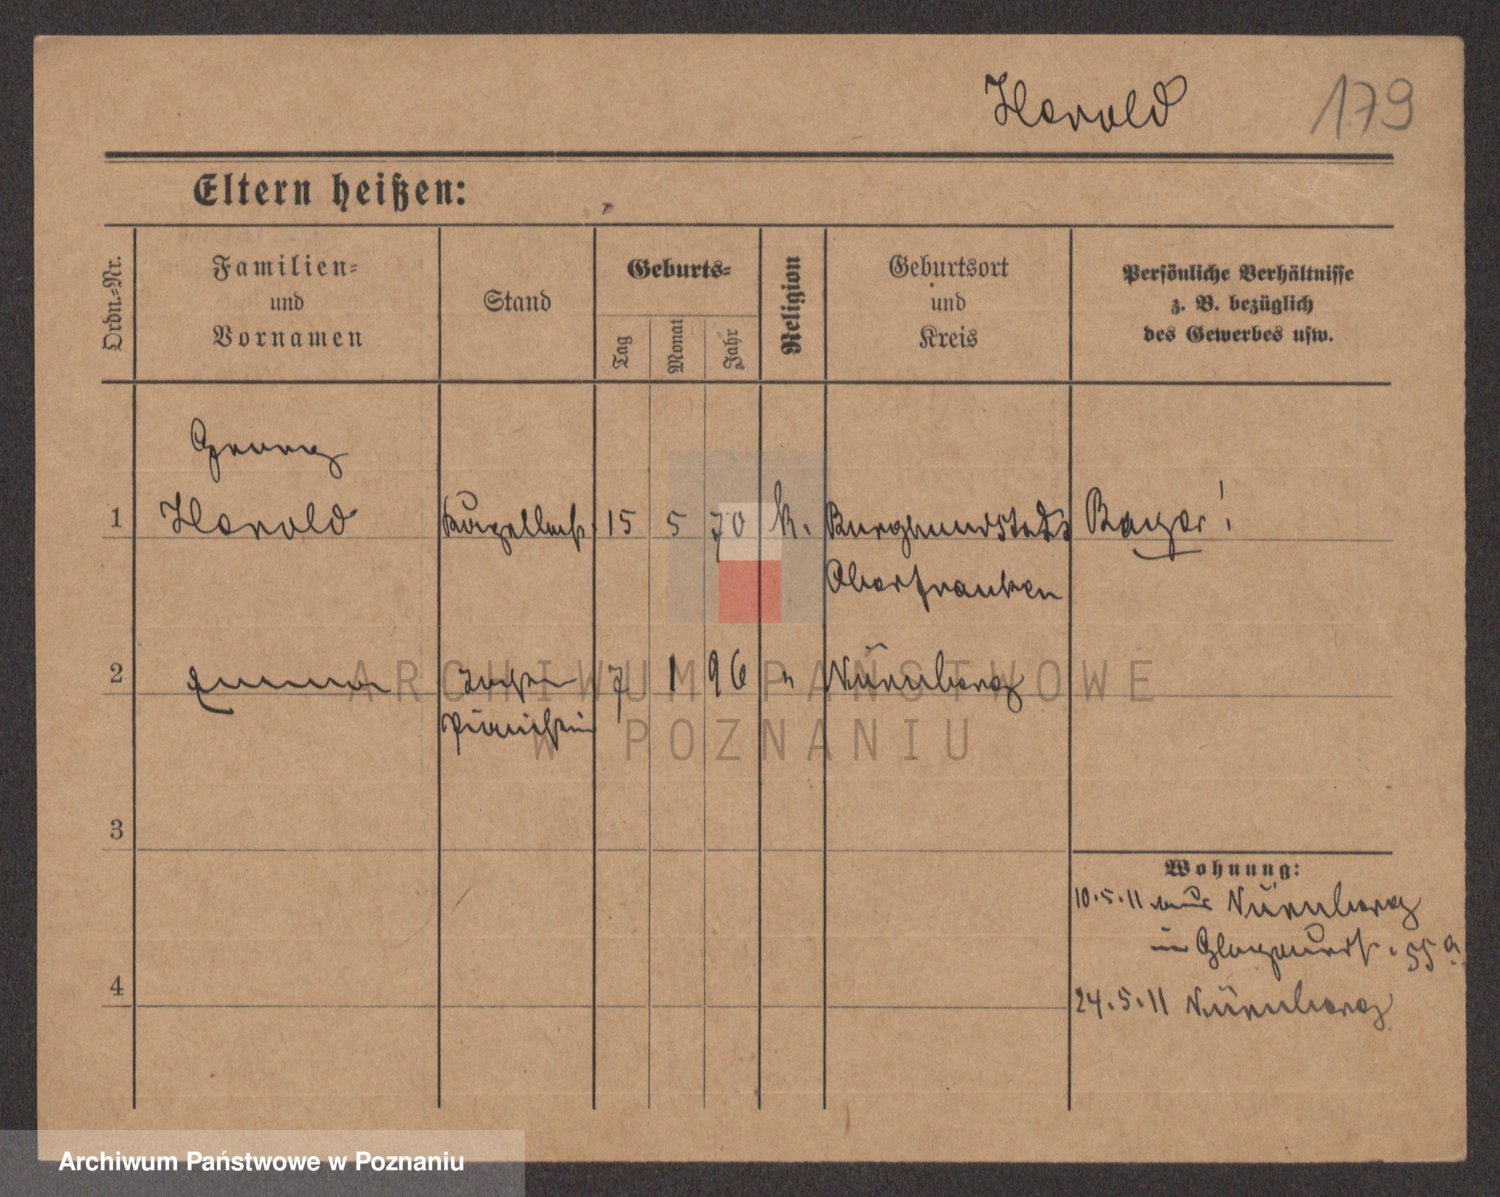 Herold 179
Eltern heißen:
Ordn.-Nr.
Familien-
und
Vornamen
Stand
Geburts-
Tag
Monat
Jahr
Religion
Geburtsort
und
Kreis
Persönliche Verhältnisse
z. B. bezüglich
des Gewerbes usw.
Georg
1 Herold Kapellmstr. 15 5 70 k. Burgkundstadt Bayer!
Oberfranken
2 Emma Tochter 7 1 96 " Nürnberg
Pianistin
3
Wohnung:
10.5.11 aus Nürnberg
in 55a
4
24.5.11 Nürnberg
ARCHIWUM PAŃSTWOWE
W POZNANIU
Archiwum Państwowe w Poznaniu